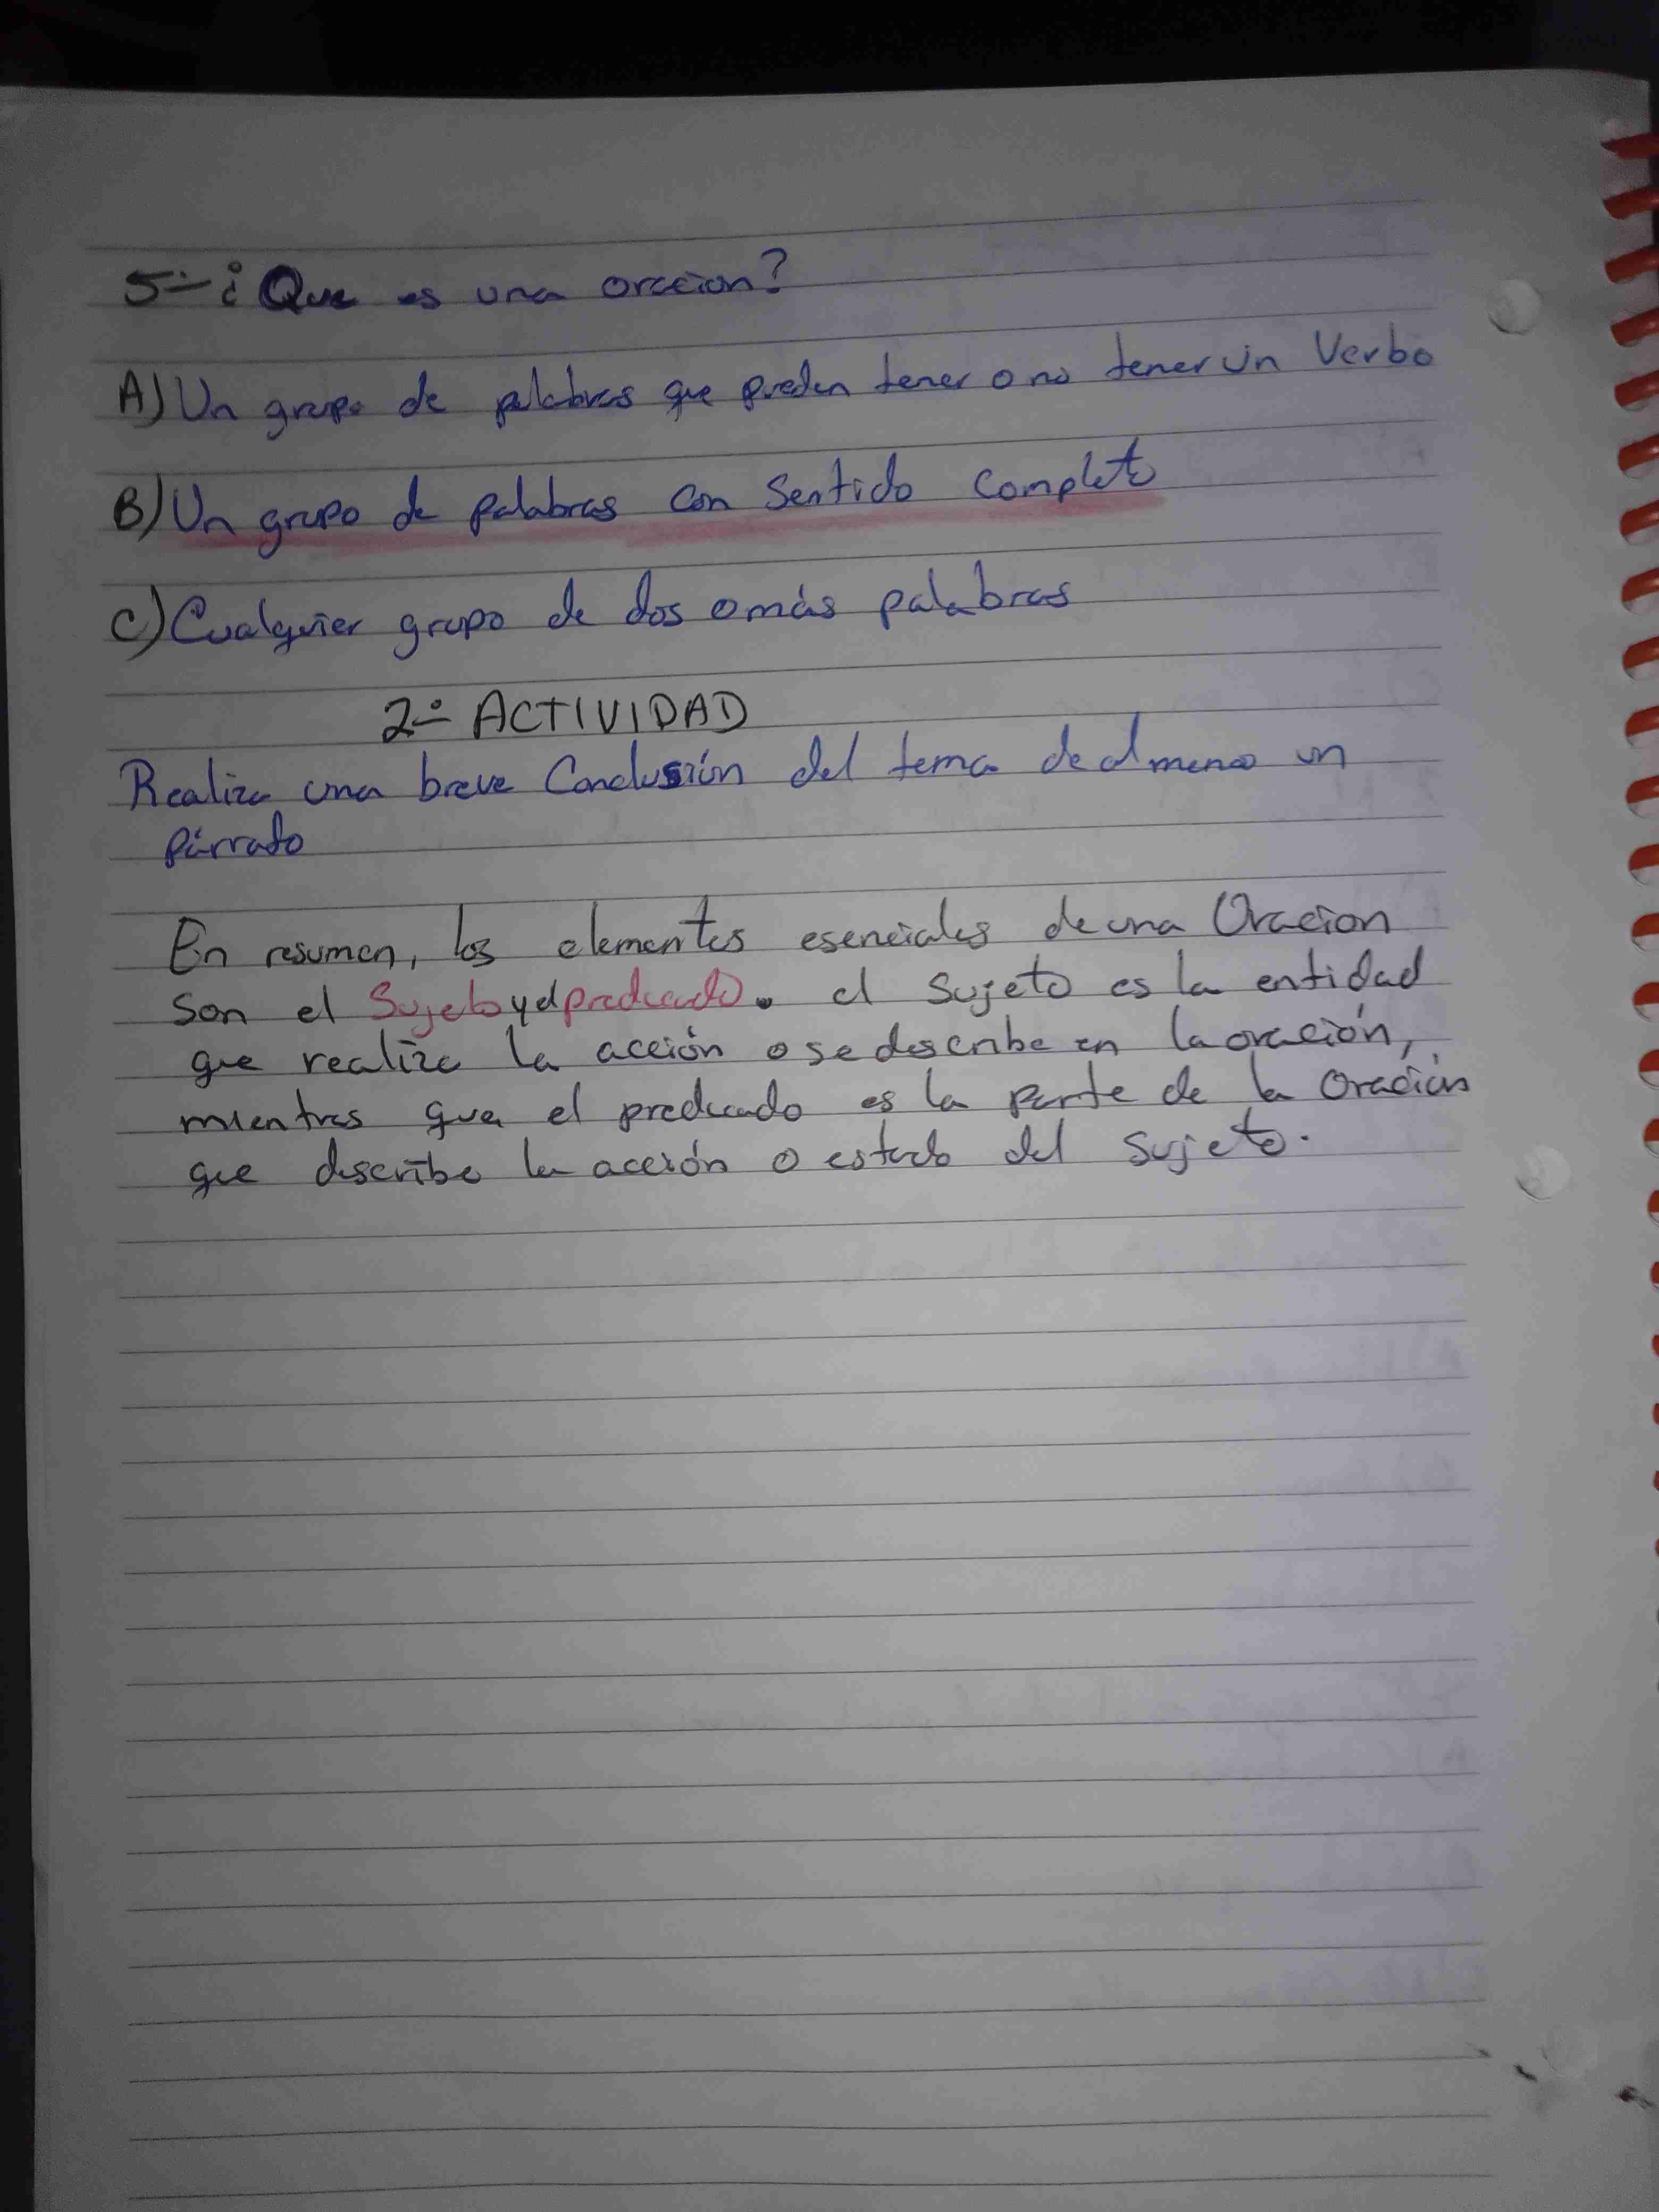 5.- ¿Que es una oracion?
A) Un grupo de palabras que pueden tener o no tener un Verbo
B) Un grupo de palabras con Sentido Completo
C) Cualquier grupo de dos o más palabras
2.- ACTIVIDAD
Realiza una breve Conclusión del tema de al menos un
párrafo
En resumen, los elementos esenciales de una Oracion
son el Sujeto y el predicado. el sujeto es la entidad
que realiza la acción o se describe en la oración,
mientras que el predicado es la parte de la Oración
que describe la acción o estado del sujeto.